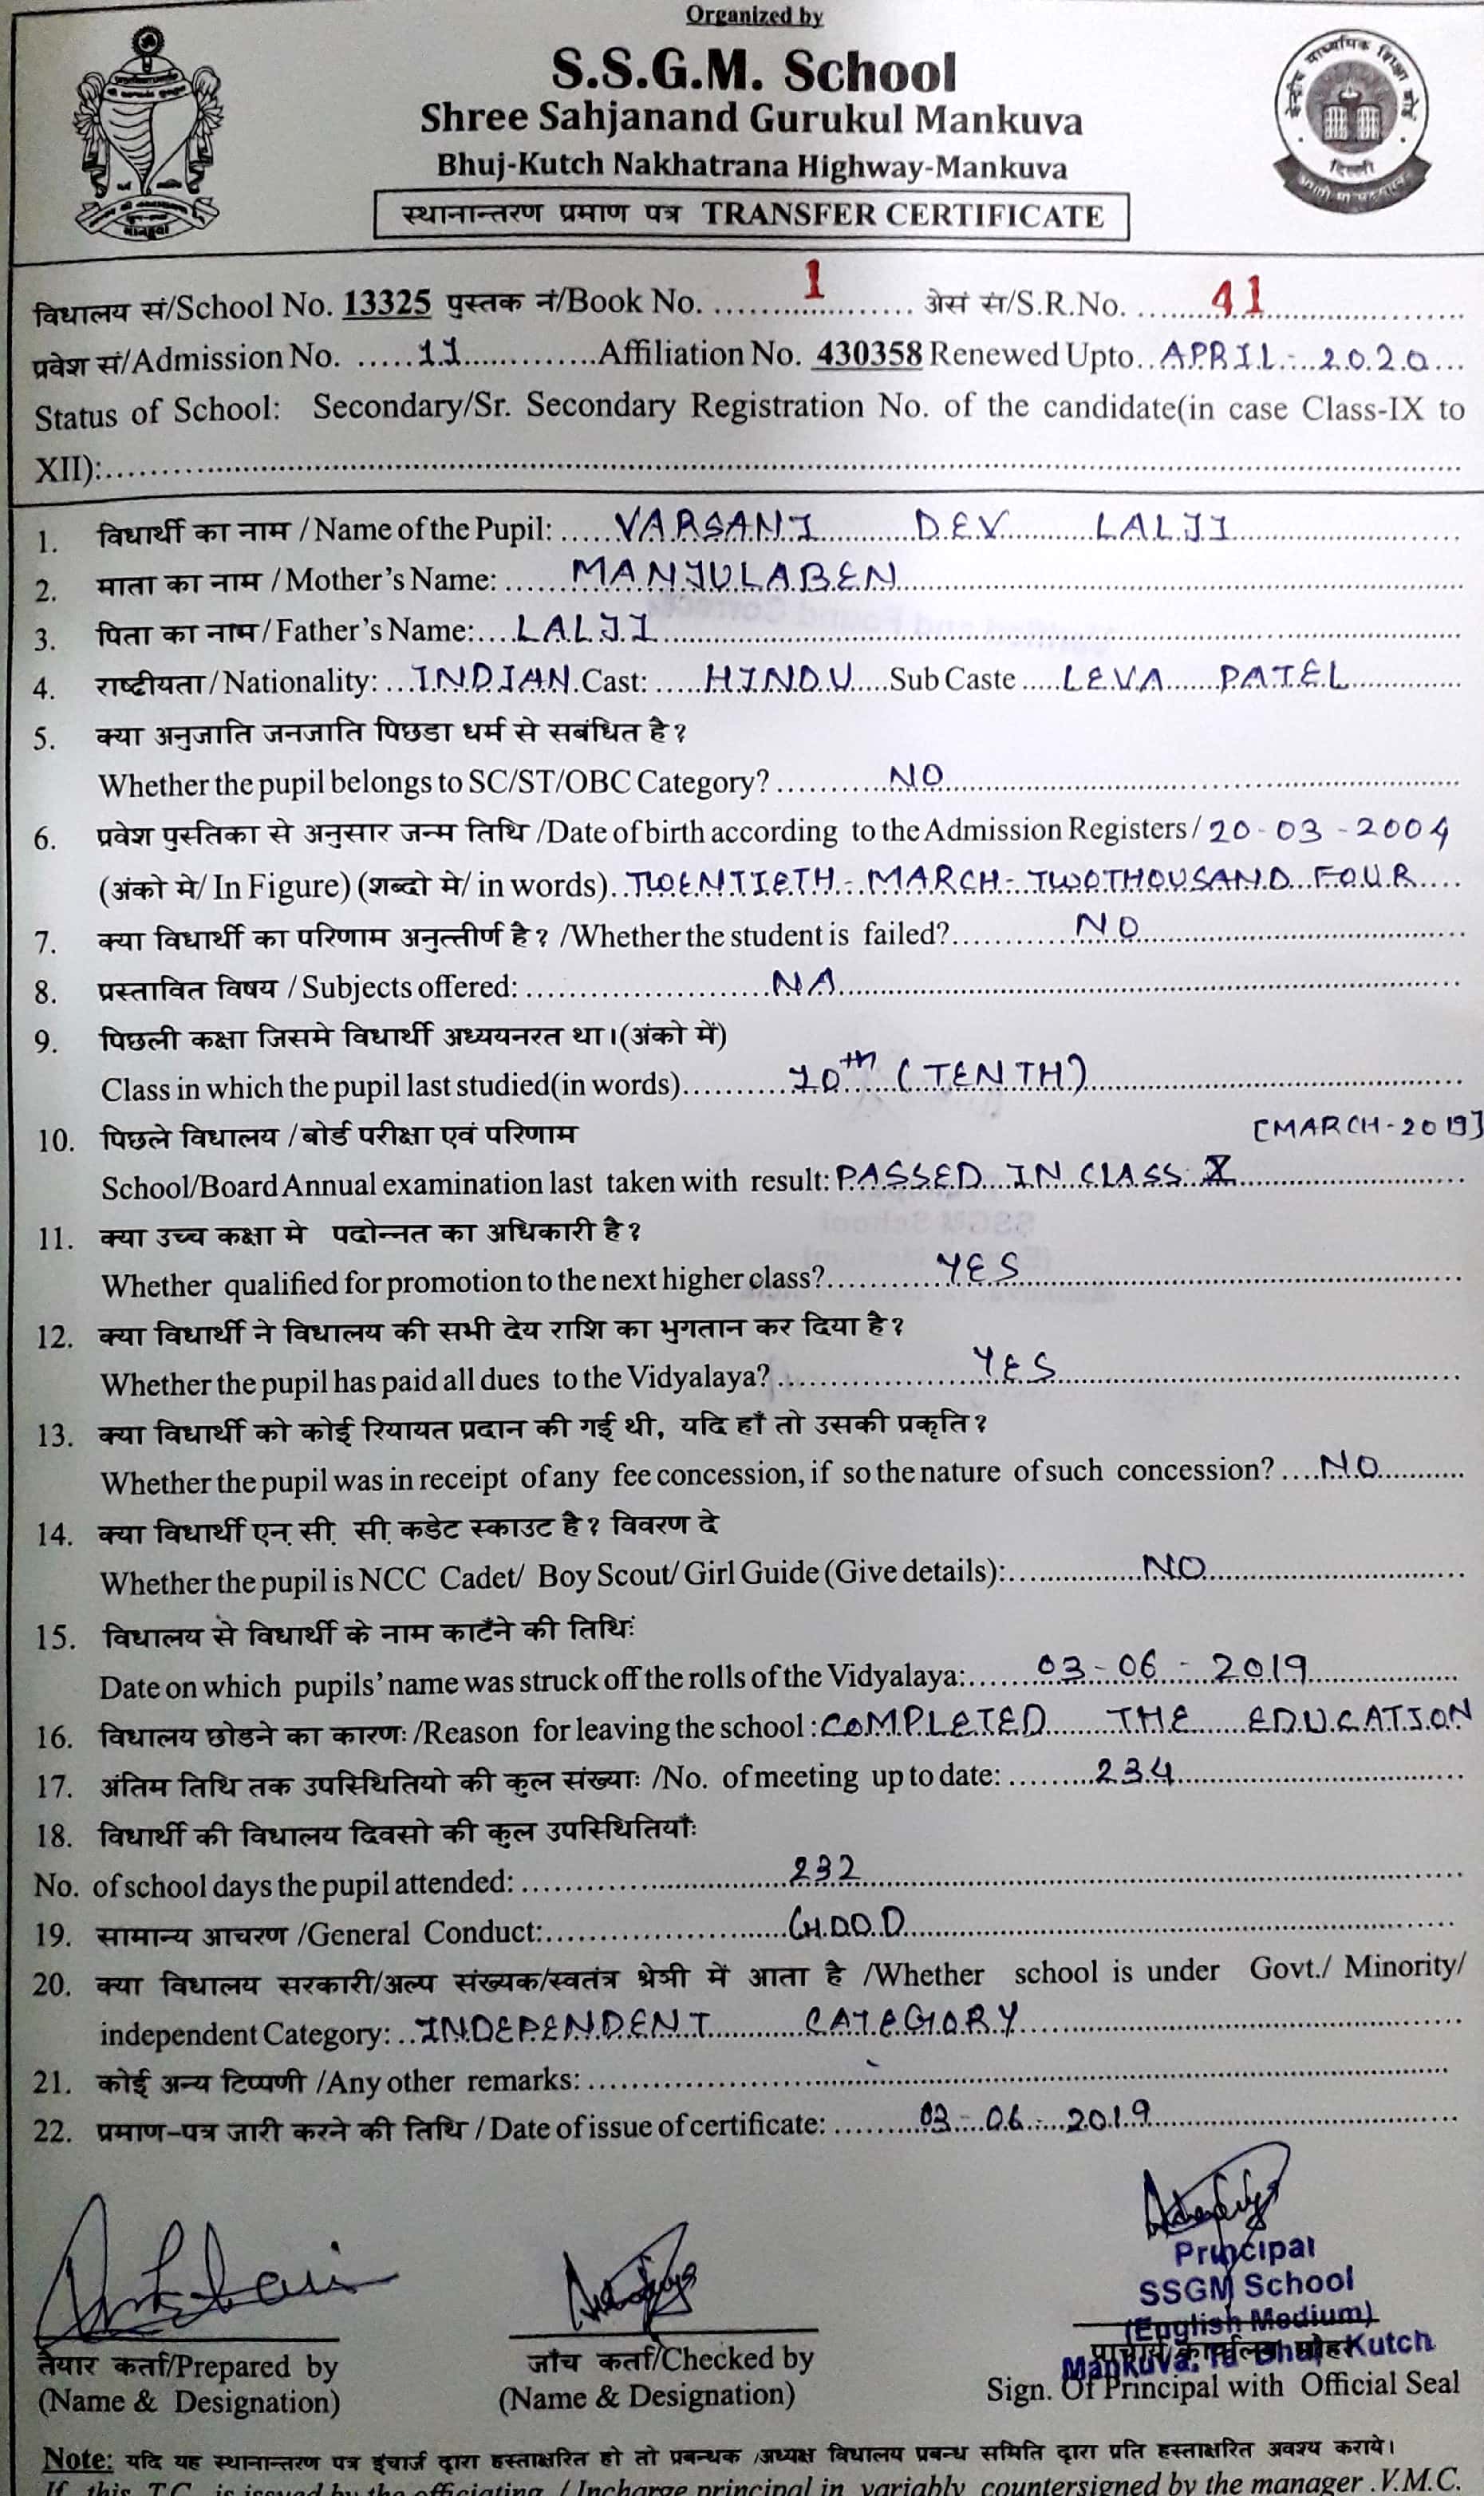 Organized by
S.S.G.M. School
Shree Sahjanand Gurukul Mankuva
Bhuj-Kutch Nakhatrana Highway-Mankuva
स्थानान्तरण प्रमाण पत्र TRANSFER CERTIFICATE
केन्द्रीय माध्यमिक शिक्षा बोर्ड
दिल्ली
विधालय सं/School No. 13325 पुस्तक नं/Book No. 1 अेसं सं/S.R.No. 41
प्रवेश सं/Admission No. 11 Affiliation No. 430358 Renewed Upto APRIL - 2020
Status of School: Secondary/Sr. Secondary Registration No. of the candidate(in case Class-IX to
XII):
1. विधार्थी का नाम / Name of the Pupil: VARSANI DEV LALJI
2. माता का नाम / Mother's Name: MANJULABEN
3. पिता का नाम / Father's Name: LALJI
4. राष्टीयता / Nationality: INDIAN Cast: HINDU Sub Caste LEVA PATEL
5. क्या अनुजाति जनजाति पिछडा धर्म से सबंधित है?
Whether the pupil belongs to SC/ST/OBC Category? NO
6. प्रवेश पुस्तिका से अनुसार जन्म तिथि /Date of birth according to the Admission Registers / 20-03-2004
(अंको मे/ In Figure) (शब्दो मे/ in words) TWENTIETH - MARCH - TWOTHOUSAND FOUR
7. क्या विधार्थी का परिणाम अनुत्तीर्ण है? /Whether the student is failed? NO
8. प्रस्तावित विषय / Subjects offered: NA
9. पिछली कक्षा जिसमे विधार्थी अध्ययनरत था।(अंको में)
Class in which the pupil last studied(in words) 10th (TENTH)
10. पिछले विधालय / बोर्ड परीक्षा एवं परिणाम [MARCH-2019]
School/Board Annual examination last taken with result: PASSED IN CLASS X
11. क्या उच्च कक्षा मे पदोन्नत का अधिकारी है?
Whether qualified for promotion to the next higher class? YES
12. क्या विधार्थी ने विधालय की सभी देय राशि का भुगतान कर दिया है?
Whether the pupil has paid all dues to the Vidyalaya? YES
13. क्या विधार्थी को कोई रियायत प्रदान की गई थी, यदि हाँ तो उसकी प्रकृति?
Whether the pupil was in receipt of any fee concession, if so the nature of such concession? NO
14. क्या विधार्थी एन. सी. सी. कडेट स्काउट है? विवरण दे
Whether the pupil is NCC Cadet/ Boy Scout/ Girl Guide (Give details): NO
15. विधालय से विधार्थी के नाम काटँने की तिथिः
Date on which pupils' name was struck off the rolls of the Vidyalaya: 03-06-2019
16. विधालय छोडने का कारणः /Reason for leaving the school: COMPLETED THE EDUCATION
17. अंतिम तिथि तक उपस्थितियो की कुल संख्याः /No. of meeting up to date: 234
18. विधार्थी की विधालय दिवसो की कुल उपस्थितियाँः
No. of school days the pupil attended: 232
19. सामान्य आचरण /General Conduct: GOOD
20. क्या विधालय सरकारी/अल्प संख्यक/स्वतंत्र श्रेणी में आता है /Whether school is under Govt./ Minority/
independent Category: INDEPENDENT CATEGORY
21. कोई अन्य टिप्पणी /Any other remarks:
22. प्रमाण-पत्र जारी करने की तिथि / Date of issue of certificate: 03-06-2019
Principal
SSGM School
(English Medium)
Mankuva. Ta-Bhuj-Kutch
तैयार कर्ता/Prepared by
(Name & Designation)
जाँच कर्ता/Checked by
(Name & Designation)
प्राचार्य कार्यालय मोहर
Sign. Of Principal with Official Seal
Note: यदि यह स्थानान्तरण पत्र इंचार्ज द्वारा हस्ताक्षरित हो तो प्रबन्धक /अध्यक्ष विधालय प्रबन्ध समिति द्वारा प्रति हस्ताक्षरित अवश्य कराये।
If this T.C. is issued by the officiating / Incharge principal in variably countersigned by the manager .V.M.C.